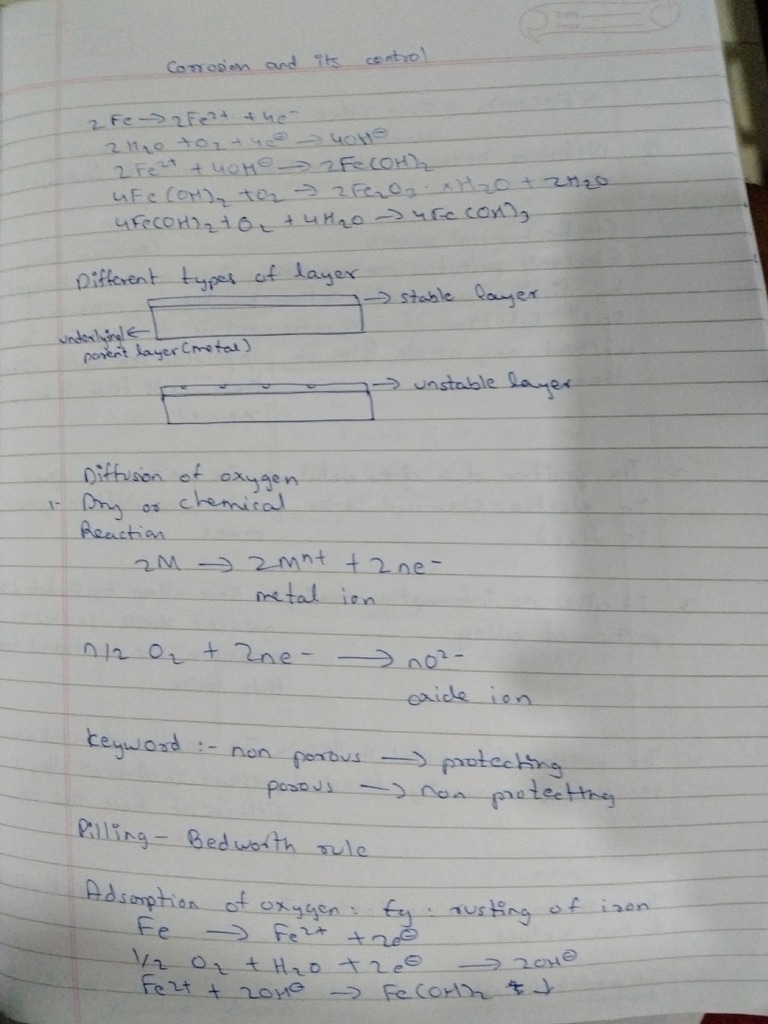 Corrosion and its control
2Fe → 2Fe²⁺ + 4e⁻
2H₂O + O₂ + 4e⊖ → 4OH⊖
2Fe²⁺ + 4OH⊖ → 2Fe(OH)₂
4Fe(OH)₂ + O₂ → 2Fe₂O₃·xH₂O + 2H₂O
4Fe(OH)₂ + O₂ + 4H₂O → 4Fe(OH)₃
Different types of layer
→ stable layer
underlying ←
parent layer (metal)
→ unstable layer
Diffusion of oxygen
1- Dry or chemical
Reaction
2M → 2Mⁿ⁺ + 2ne⁻
metal ion
n/2 O₂ + 2ne⁻ → nO²⁻
oxide ion
Keyword :- non porous → protecting
porous → non protecting
Pilling - Bedworth rule
Adsorption of oxygen : Eg : rusting of iron
Fe → Fe²⁺ + 2e⊖
1/2 O₂ + H₂O + 2e⊖ → 2OH⊖
Fe²⁺ + 2OH⊖ → Fe(OH)₂ ↓